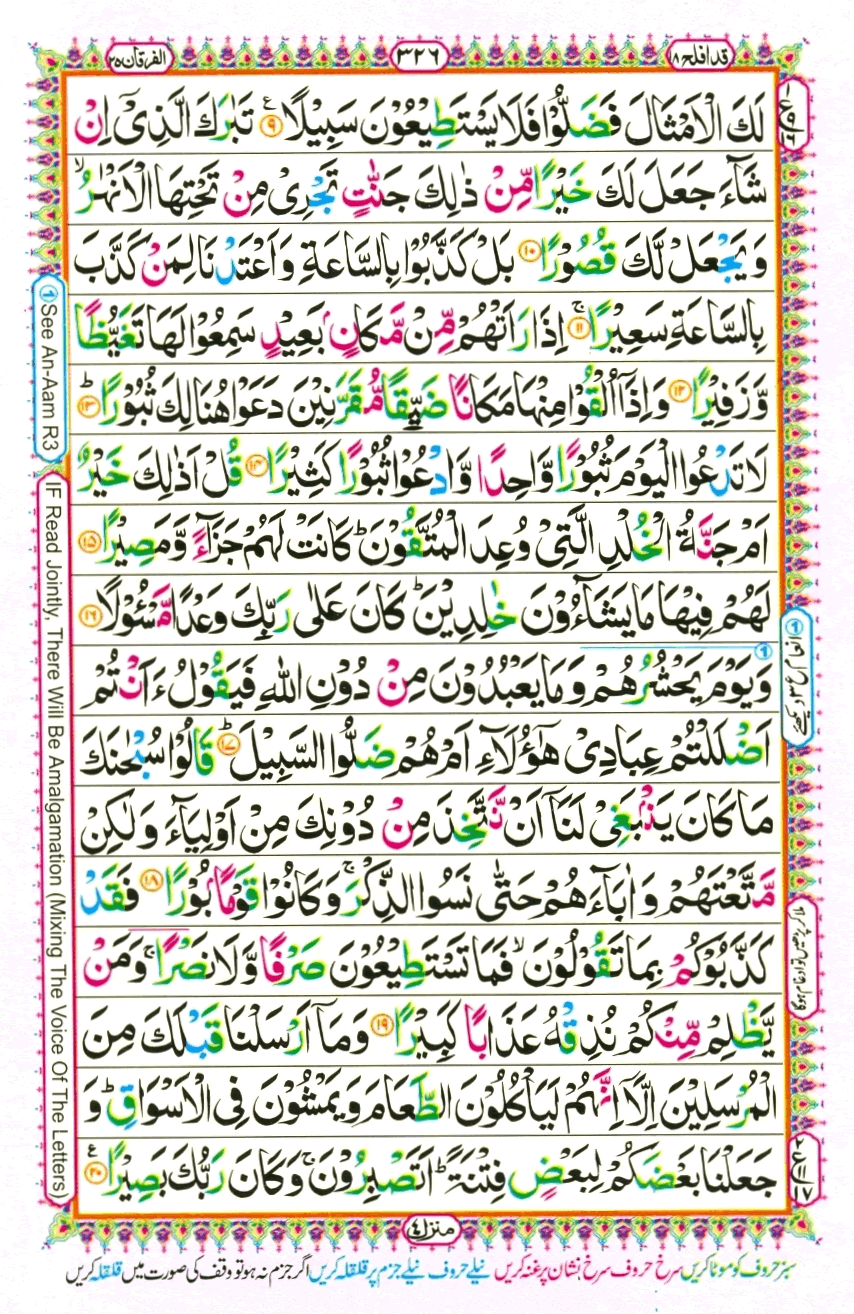 قد افلح ١٨
٣٢٦
الفرقان ٢٥
لَكَ الۡاَمۡثَالَ فَضَلُّوۡا فَلَا يَسۡتَطِيۡعُوۡنَ سَبِيۡلًا ٩ تَبٰرَكَ الَّذِىۡۤ اِنۡ
شَآءَ جَعَلَ لَكَ خَيۡرًا مِّنۡ ذٰلِكَ جَنّٰتٍ تَجۡرِىۡ مِنۡ تَحۡتِهَا الۡاَنۡهٰرُ ۙ
وَيَجۡعَلۡ لَّكَ قُصُوۡرًا ١٠ بَلۡ كَذَّبُوۡا بِالسَّاعَةِ وَاَعۡتَدۡنَا لِمَنۡ كَذَّبَ
بِالسَّاعَةِ سَعِيۡرًا ۚ ١١ اِذَا رَاَتۡهُمۡ مِّنۡ مَّكَانٍۭ بَعِيۡدٍ سَمِعُوۡا لَهَا تَغَيُّظًا
وَّزَفِيۡرًا ١٢ وَاِذَاۤ اُلۡقُوۡا مِنۡهَا مَكَانًا ضَيِّقًا مُّقَرَّنِيۡنَ دَعَوۡا هُنَالِكَ ثُبُوۡرًا ؕ ١٣
لَا تَدۡعُوا الۡيَوۡمَ ثُبُوۡرًا وَّاحِدًا وَّادۡعُوۡا ثُبُوۡرًا كَثِيۡرًا ١٤ قُلۡ اَذٰلِكَ خَيۡرٌ
اَمۡ جَنَّةُ الۡخُلۡدِ الَّتِىۡ وُعِدَ الۡمُتَّقُوۡنَ ؕ كَانَتۡ لَهُمۡ جَزَآءً وَّمَصِيۡرًا ١٥
لَهُمۡ فِيۡهَا مَا يَشَآءُوۡنَ خٰلِدِيۡنَ ؕ كَانَ عَلٰى رَبِّكَ وَعۡدًا مَّسۡـُٔوۡلًا ١٦
وَيَوۡمَ يَحۡشُرُهُمۡ وَمَا يَعۡبُدُوۡنَ مِنۡ دُوۡنِ اللّٰهِ فَيَقُوۡلُ ءَاَنۡتُمۡ
اَضۡلَلۡتُمۡ عِبَادِىۡ هٰٓؤُلَآءِ اَمۡ هُمۡ ضَلُّوا السَّبِيۡلَ ؕ ١٧ قَالُوۡا سُبۡحٰنَكَ
مَا كَانَ يَنۡۢبَغِىۡ لَنَاۤ اَنۡ نَّتَّخِذَ مِنۡ دُوۡنِكَ مِنۡ اَوۡلِيَآءَ وَلٰكِنۡ
مَّتَّعۡتَهُمۡ وَاٰبَآءَهُمۡ حَتّٰى نَسُوا الذِّكۡرَ ۚ وَكَانُوۡا قَوۡمًۢا بُوۡرًا ١٨ فَقَدۡ
كَذَّبُوۡكُمۡ بِمَا تَقُوۡلُوۡنَ ۙ فَمَا تَسۡتَطِيۡعُوۡنَ صَرۡفًا وَّلَا نَصۡرًا ۚ وَمَنۡ
يَّظۡلِمۡ مِّنۡكُمۡ نُذِقۡهُ عَذَابًا كَبِيۡرًا ١٩ وَمَاۤ اَرۡسَلۡنَا قَبۡلَكَ مِنَ
الۡمُرۡسَلِيۡنَ اِلَّاۤ اِنَّهُمۡ لَيَاۡكُلُوۡنَ الطَّعَامَ وَيَمۡشُوۡنَ فِى الۡاَسۡوَاقِ ؕ وَ
جَعَلۡنَا بَعۡضَكُمۡ لِبَعۡضٍ فِتۡنَةً ؕ اَتَصۡبِرُوۡنَ ۚ وَكَانَ رَبُّكَ بَصِيۡرًا ٢٠
① See An-Aam R3
IF Read Jointly, There Will Be Amalgamation (Mixing The Voice Of The Letters)
منزل ٤
سبز حروف کو موٹا کریں سرخ حروف سرخ نشان پر غنہ کریں نیلے حروف نیلے جزم پر قلقلہ کریں اگر جزم نہ ہو تو وقف کی صورت میں قلقلہ کریں